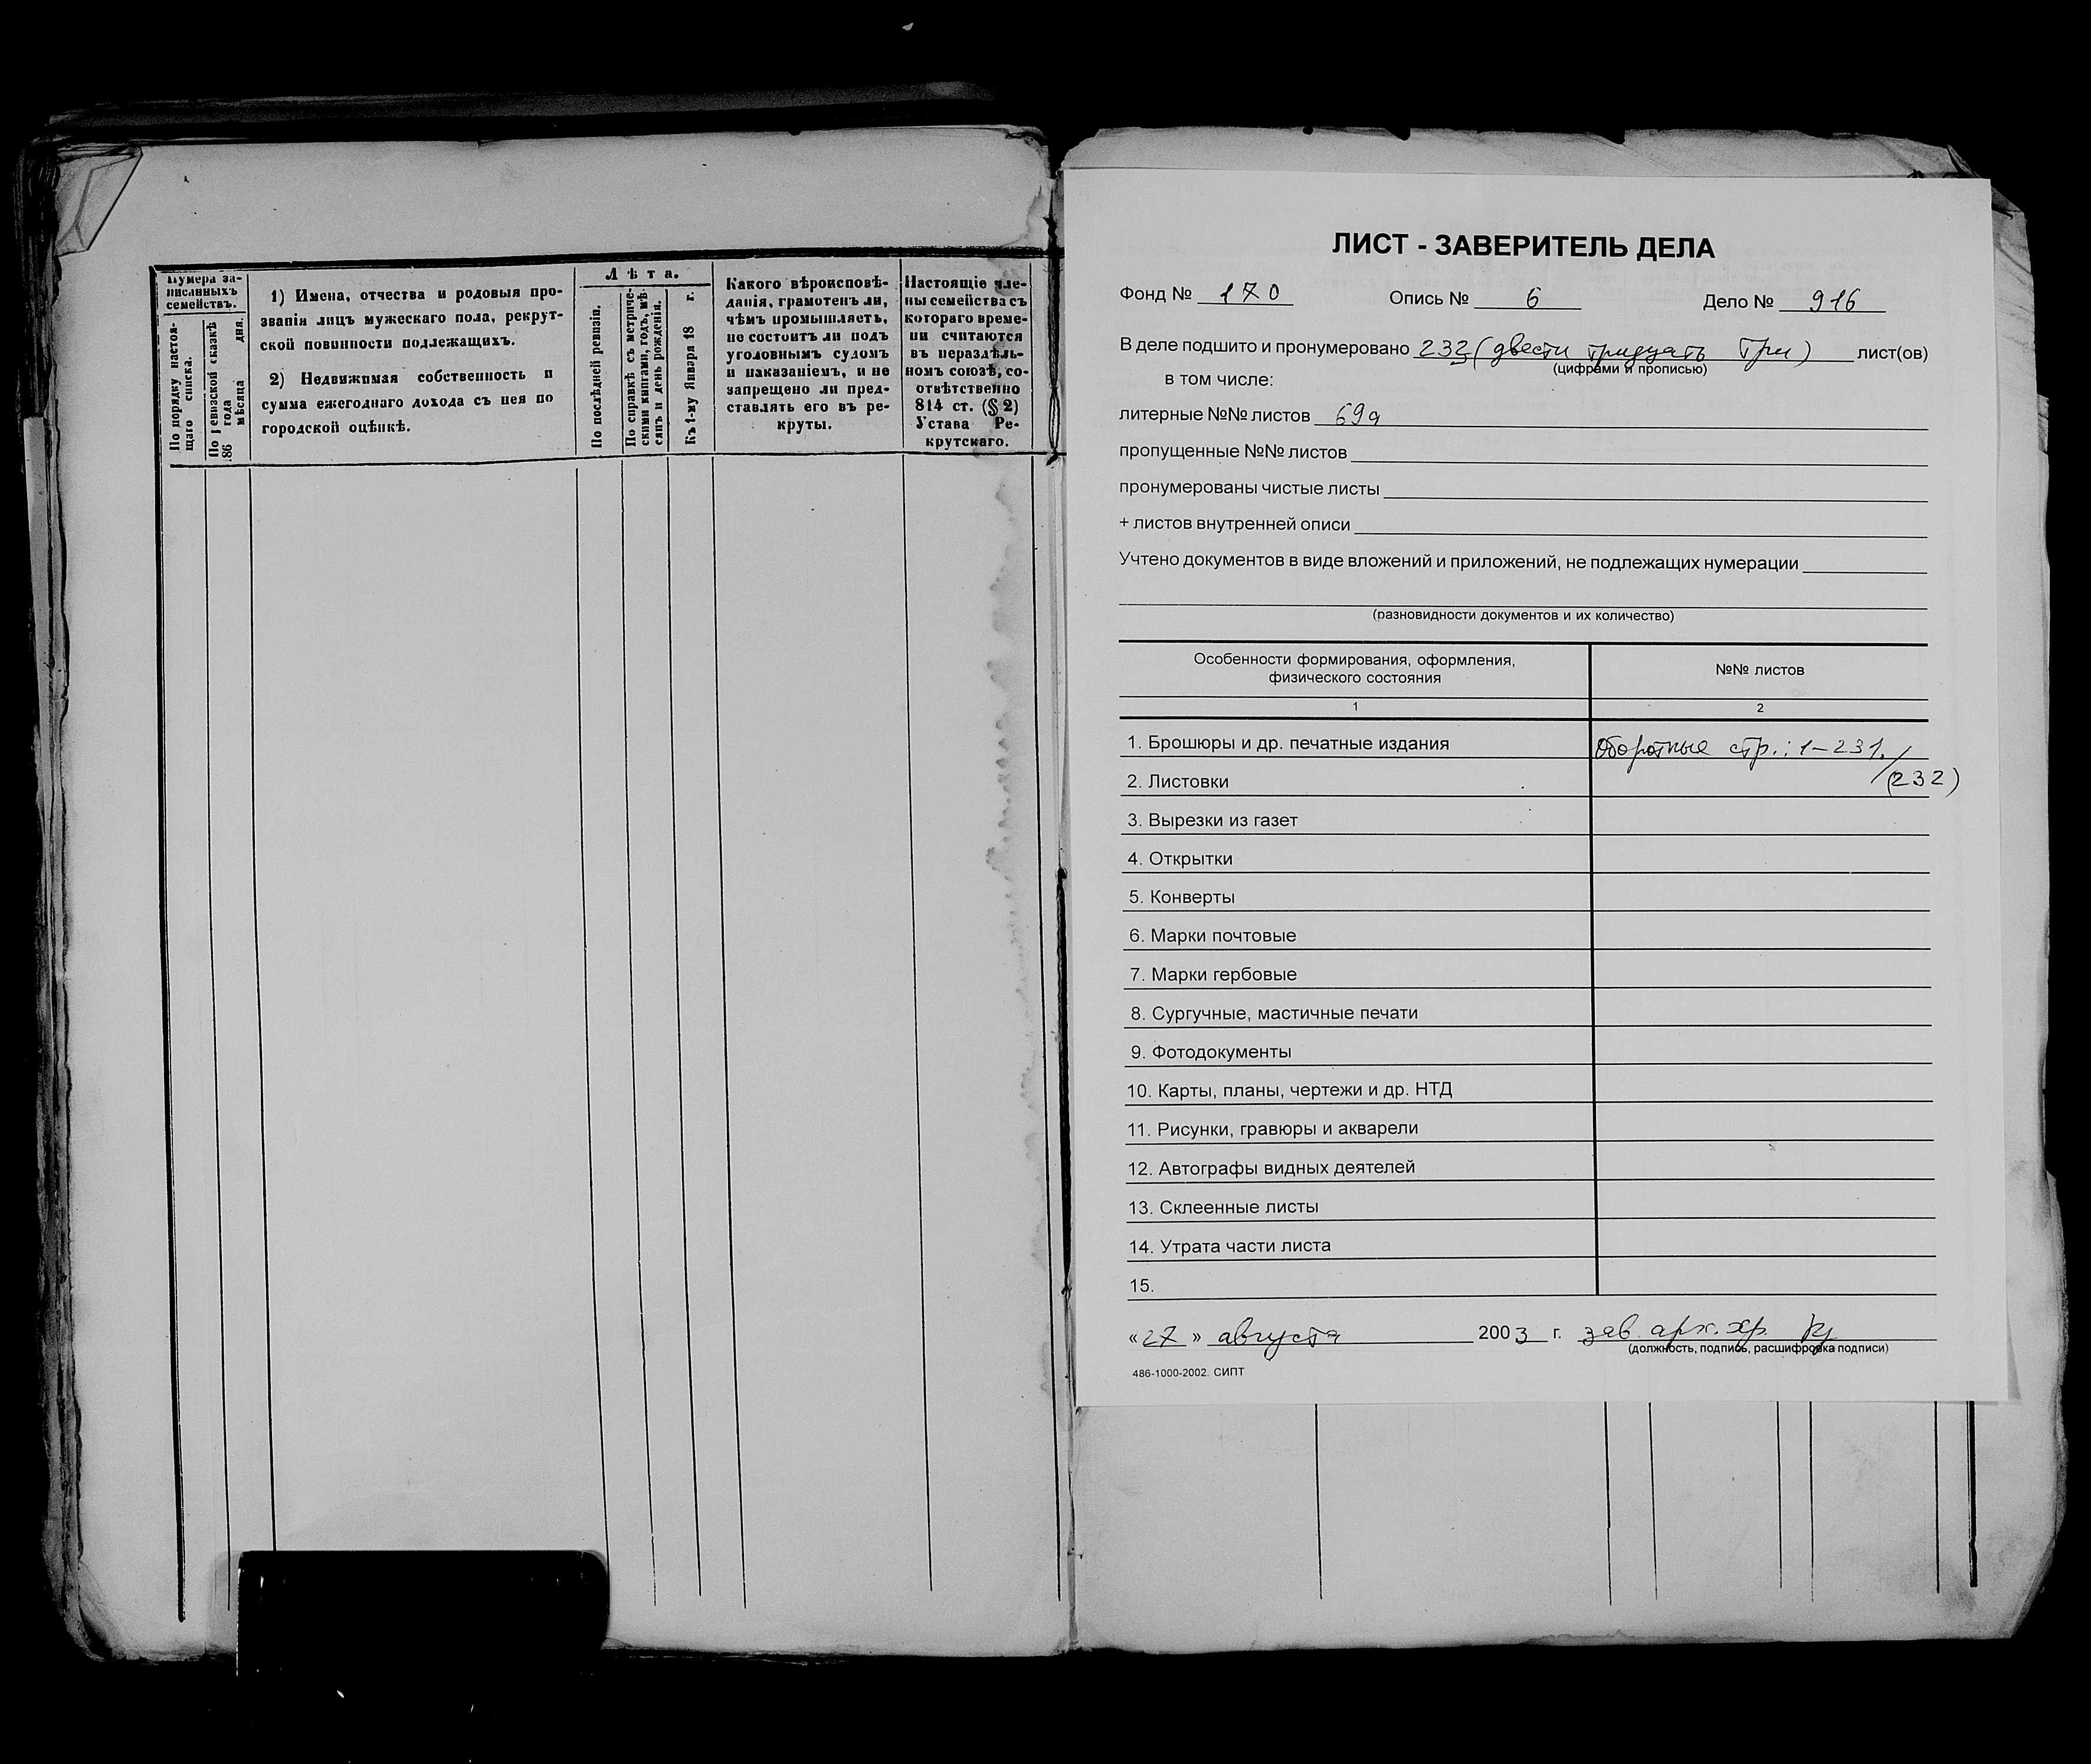 Нумера за-
писанныхъ
семействъ.
По порядку настоя-
щаго списка.
По ревизской сказкѣ
186 года мѣсяца дня.
1) Имена, отчества и родовыя про-
званія лицъ мужескаго пола, рекрут-
ской повинности подлежащихъ.
2) Недвижимая собственность и
сумма ежегоднаго дохода съ нея по
городской оцѣнкѣ.
Лѣта.
По послѣдней ревизіи.
По справкѣ съ метриче-
скими книгами, годъ, мѣ-
сяцъ и день рожденія.
Къ 1-му Января 18 г.
Какого вѣроисповѣ-
данія, грамотенъ ли,
чѣмъ промышляетъ,
не состоитъ ли подъ
уголовнымъ судомъ
и наказаніемъ, и не
запрещено ли пред-
ставлять его въ ре-
круты.
Настоящіе чле-
ны семейства съ
котораго време-
ни считаются
въ нераздѣль-
номъ союзѣ, со-
отвѣтственно
814 ст. (§ 2)
Устава Ре-
крутскаго.
ЛИСТ - ЗАВЕРИТЕЛЬ ДЕЛА
Фонд № 170 Опись № 6 Дело № 916
В деле подшито и пронумеровано 232 (двести тридцать три) лист(ов)
(цифрами и прописью)
в том числе:
литерные №№ листов 69а
пропущенные №№ листов
пронумерованы чистые листы
+ листов внутренней описи
Учтено документов в виде вложений и приложений, не подлежащих нумерации
(разновидности документов и их количество)
Особенности формирования, оформления,
физического состояния
№№ листов
1 2
1. Брошюры и др. печатные издания Оборотные стр.: 1-231.
2. Листовки (232)
3. Вырезки из газет
4. Открытки
5. Конверты
6. Марки почтовые
7. Марки гербовые
8. Сургучные, мастичные печати
9. Фотодокументы
10. Карты, планы, чертежи и др. НТД
11. Рисунки, гравюры и акварели
12. Автографы видных деятелей
13. Склеенные листы
14. Утрата части листа
15.
«27» августа 2003 г. зав. арх. хр.
(должность, подпись, расшифровка подписи)
486-1000-2002. СИПТ